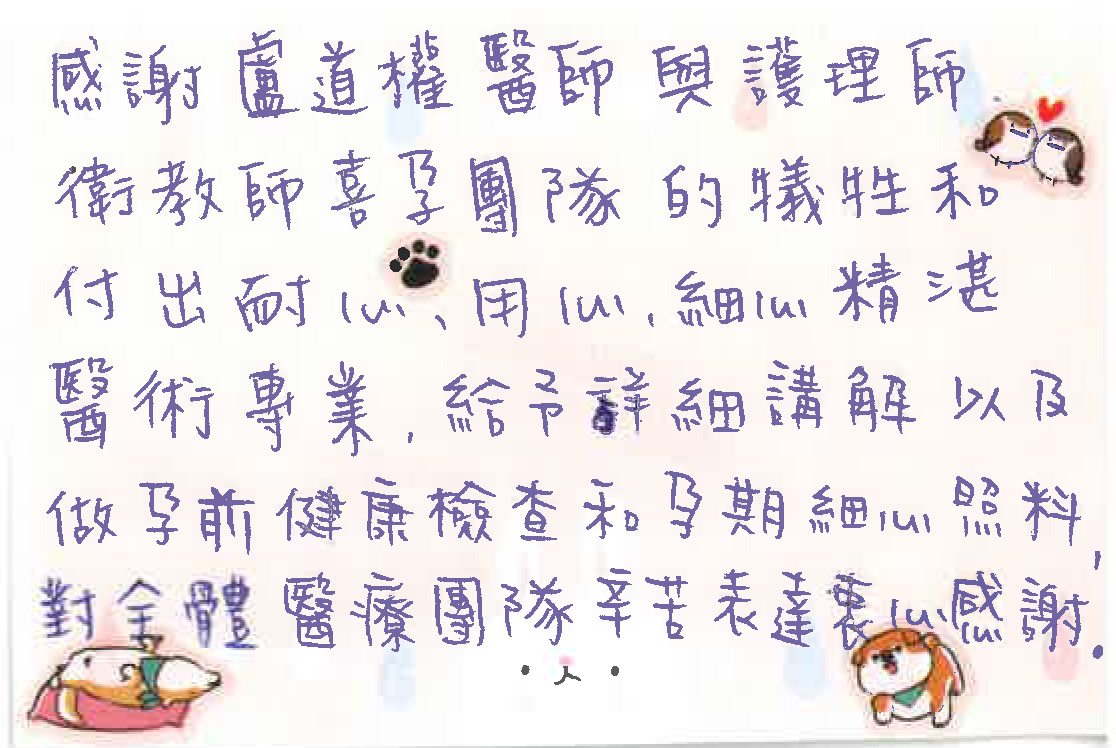 感謝盧道權醫師與護理師
衛教師喜孕團隊的犧牲和
付出耐心、用心,細心精湛
醫術專業,給予詳細講解以及
做孕前健康檢查和孕期細心照料,
對全體醫療團隊辛苦表達衷心感謝.